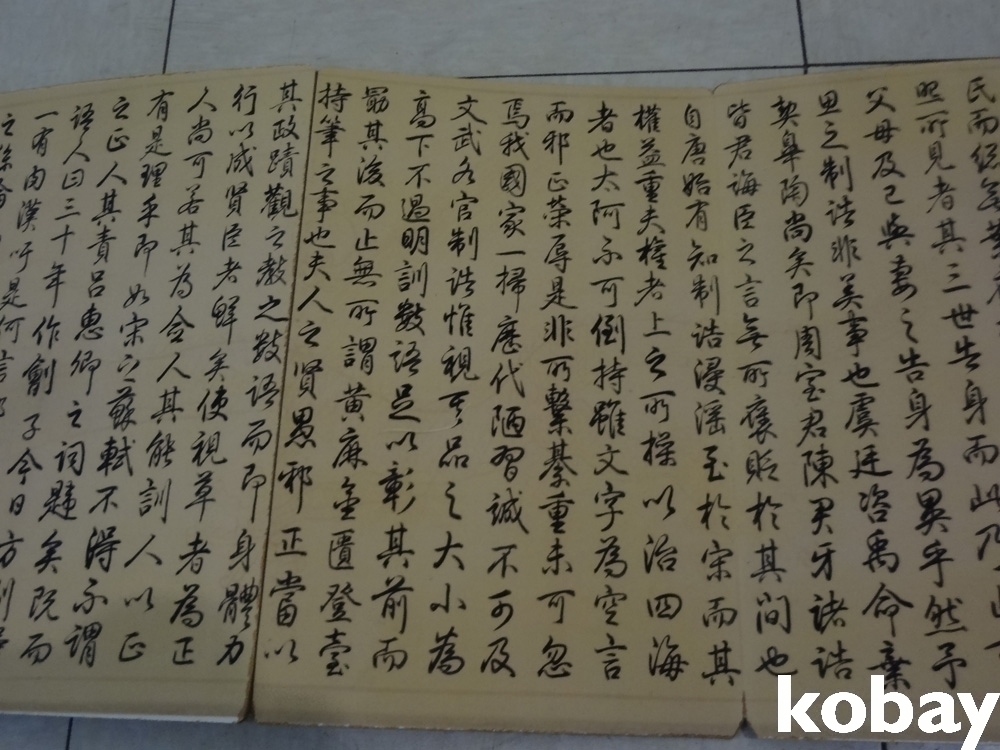 民而
照所見者其三世告身而此乃
父母及己與妻之告身為異乎然予
思之制誥非美事也虞廷咨禹命棄
契皋陶尚矣即周室君陳君牙諸誥
皆君誨臣之言無所褒貶於其間也
自唐始有知制誥浸淫至於宋而其
權益重夫權者上之所操以治四海
者也太阿不可倒持雖文字為空言
而邪正榮辱是非所繫綦重未可忽
焉我國家一掃歷代陋習誠不可及
文武各官制誥惟視其品之大小為
高下不過明訓數語足以彰其前而
勗其後而止無所謂黃麻金匱登臺
持筆之事也夫人之賢愚邪正當以
其政蹟觀之敷之數語而即身體力
行以成賢臣者鮮矣使視草者為正
人尚可若其為僉人其能訓人以正
有是理乎即如宋之蘇軾不得不謂
之正人其責呂惠卿之詞韙矣既而
語人曰三十年作劊子今日方剮
一有肉漢吁是何言
之
kobay